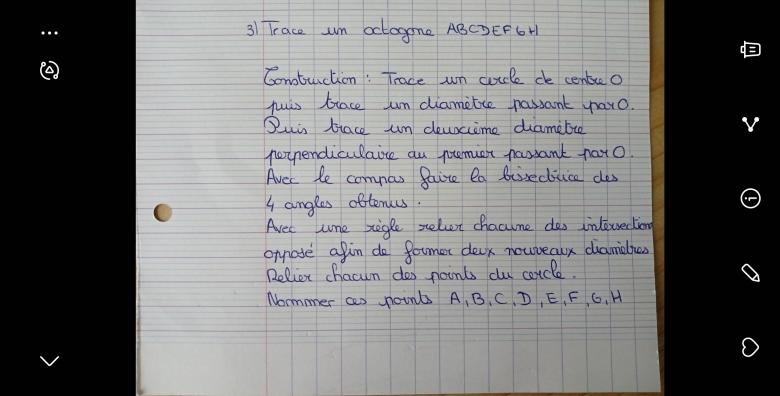 3) Trace un octogone ABCDEFGH
Construction : Trace un cercle de centre O
puis trace un diamètre passant par O.
Puis trace un deuxième diamètre
perpendiculaire au premier passant par O.
Avec le compas faire la bissectrice des
4 angles obtenus.
Avec une règle relier chacune des intersection
opposé afin de former deux nouveaux diamètres
Relier chacun des points du cercle.
Nommer ces points A, B, C, D, E, F, G, H